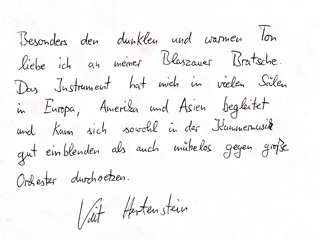 Besonders den dunklen und warmen Ton
liebe ich an meiner Blaszauer Bratsche.
Das Instrument hat mich in vielen Sälen
in Europa, Amerika und Asien begleitet
und kann sich sowohl in der Kammermusik
gut einblenden als auch mühelos gegen große
Orchester durchsetzen.
Veit Hertenstein